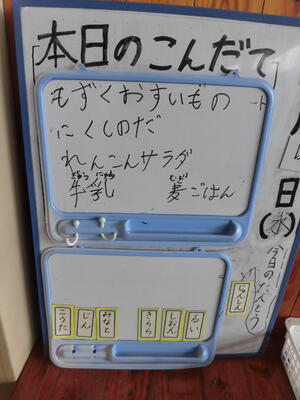 本日のこんだて
もずくおすいもの
にくしのだ
れんこんサラダ
ぎゅうにゅう むぎ
牛乳 麦ごはん
日
(水)
今日のたんとう
じゅんとん
るい
しおん
きらら
みなと
じん
こうた